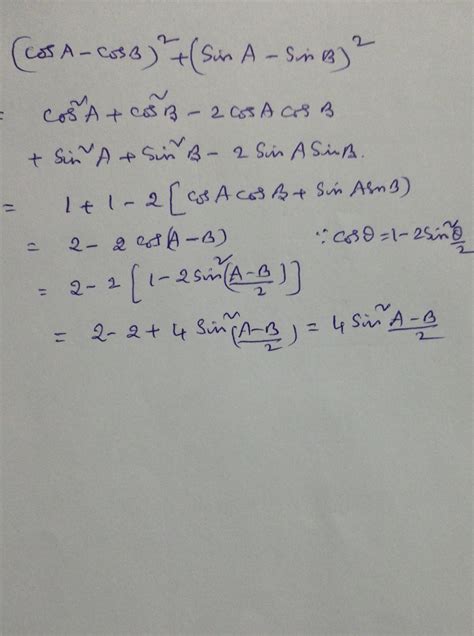 (cosA - cosB)² + (Sin A - Sin B)²
= cos²A + cos²B - 2 cosA cosB
+ Sin²A + Sin²B - 2 Sin A Sin B.
= 1 + 1 - 2 [cosA cosB + Sin A Sin B)
= 2 - 2 cos(A - B) ∵ cosθ = 1 - 2Sin²θ/2
= 2 - 2 [1 - 2Sin²(A-B/2)]
= 2 - 2 + 4 Sin²(A-B/2) = 4 Sin² A-B/2